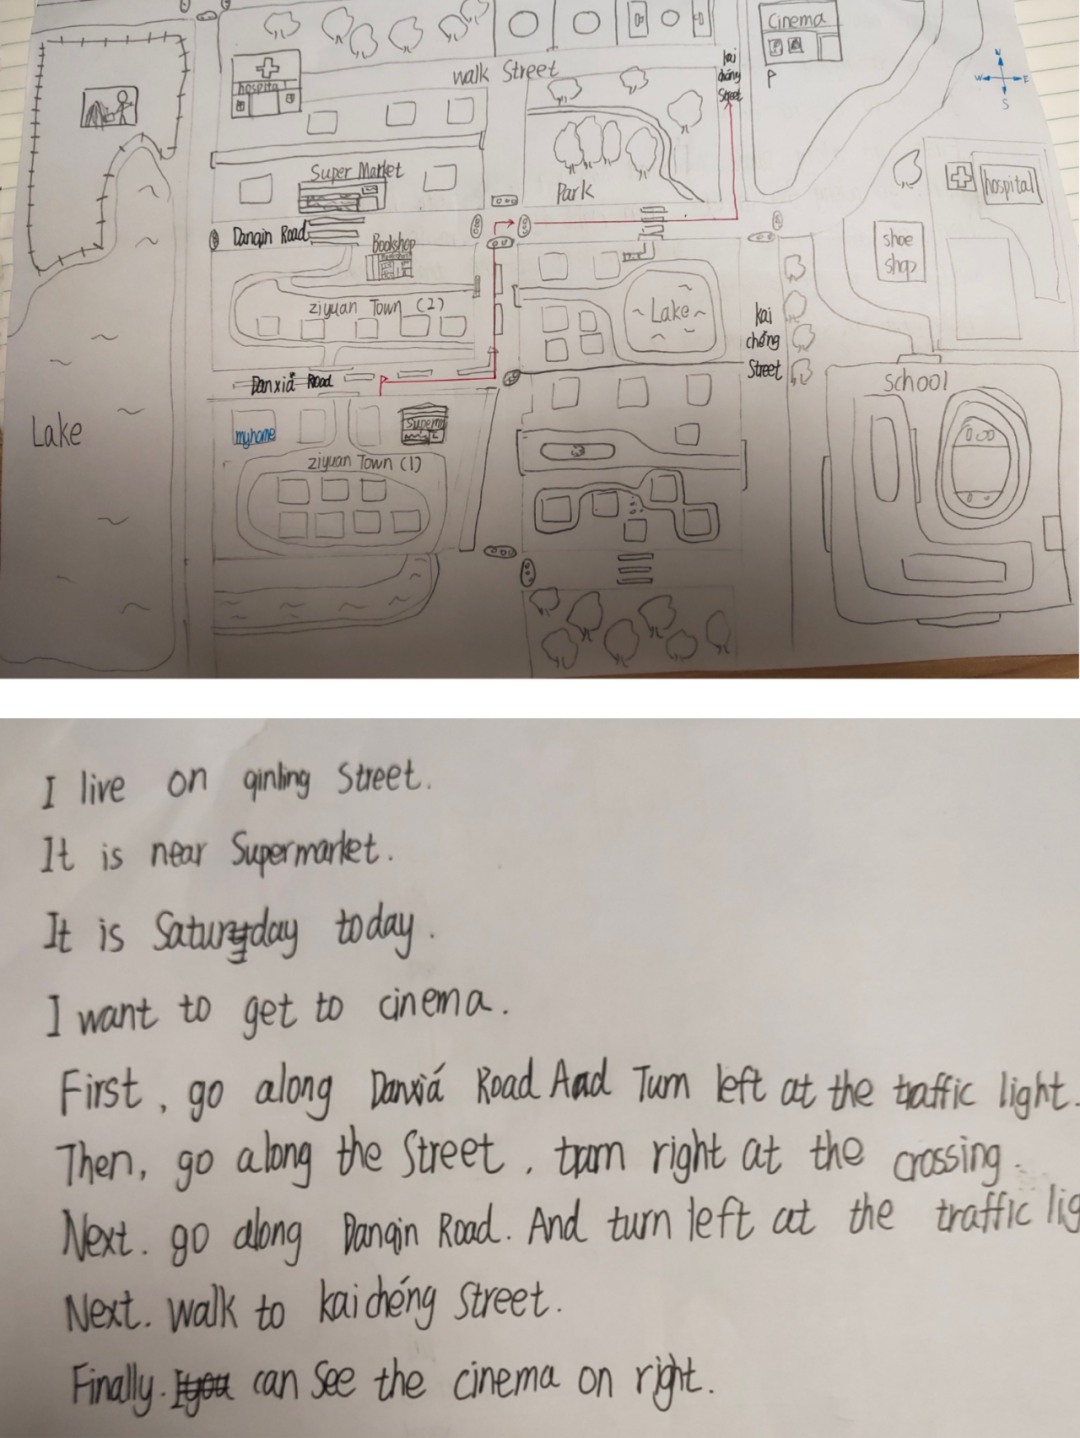 Cinema
walk Street
kai
chéng
Street
N
W
E
S
hospital
Super Market
Park
hospital
Danqin Road
Bookshop
shoe
shop
ziyuan Town (2)
Lake
kai
chéng
Street
Danxiá Road
School
Lake
myhome
Superm
ziyuan Town (1)
I live on qinling Street.
It is near Supermarket.
It is Saturday today.
I want to get to cinema.
First, go along Danxiá Road And Turn left at the traffic light.
Then, go along the Street, turn right at the crossing.
Next. go along Danqin Road. And turn left at the traffic lig
Next. walk to kaichéng Street.
Finally. can See the cinema on right.